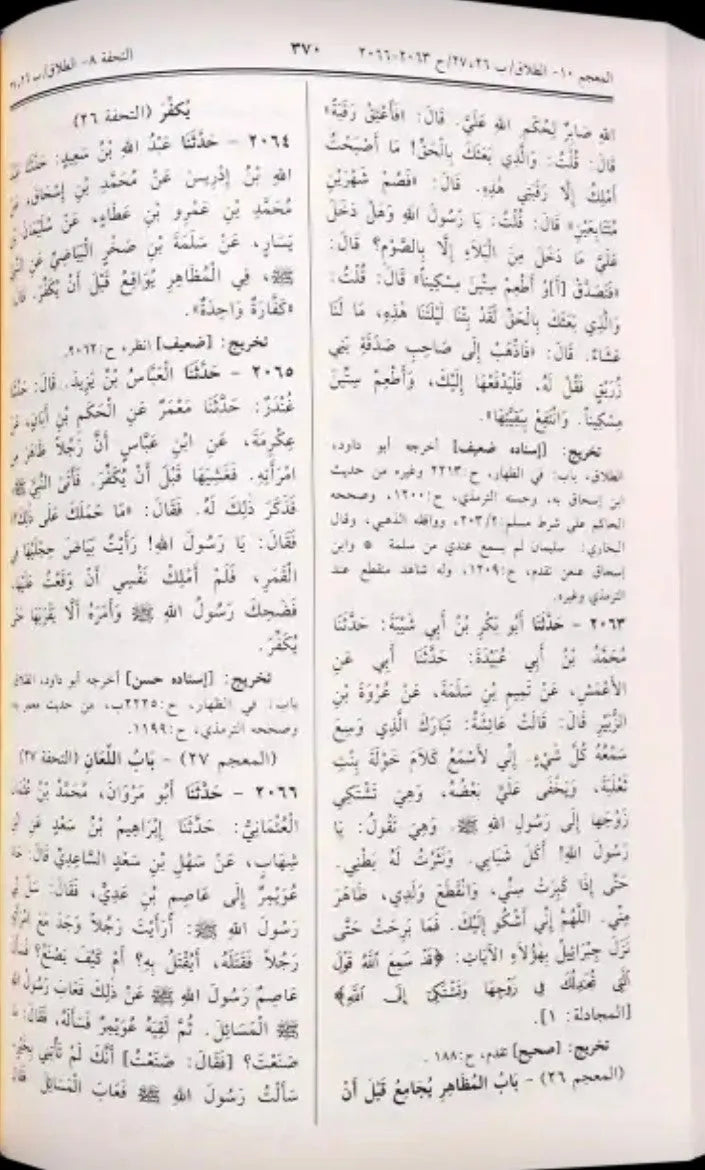 المعجم ١٠- الطلاق/ ب ٢٦، ٢٧/ ح ٢٠٦٣-٢٠٦٦
٣٧٠
التحفة ٨- الطلاق/ ب ٢٦،
اللهِ صَابِرٌ لِحُكْمِ اللهِ عَلَيَّ. قَالَ: «فَأَعْتِقْ رَقَبَةً»
قَالَ: قُلْتُ: وَالَّذِي بَعَثَكَ بِالْحَقِّ! مَا أَصْبَحْتُ
أَمْلِكُ إِلَّا رَقَبَتِي هٰذِهِ. قَالَ: «فَصُمْ شَهْرَيْنِ
مُتَتَابِعَيْنِ» قَالَ: قُلْتُ: يَا رَسُولَ اللهِ وَهَلْ دَخَلَ
عَلَيَّ مَا دَخَلَ مِنَ الْبَلَاءِ إِلَّا بِالصَّوْمِ؟ قَالَ:
«فَتَصَدَّقْ [أَ]وْ أَطْعِمْ سِتِّينَ مِسْكِيناً» قَالَ: قُلْتُ:
وَالَّذِي بَعَثَكَ بِالْحَقِّ لَقَدْ بِتْنَا لَيْلَتَنَا هٰذِهِ، مَا لَنَا
عَشَاءٌ. قَالَ: «فَاذْهَبْ إِلَى صَاحِبِ صَدَقَةِ بَنِي
زُرَيْقٍ فَقُلْ لَهُ. فَلْيَدْفَعْهَا إِلَيْكَ، وَأَطْعِمْ سِتِّينَ
مِسْكِيناً. وَانْتَفِعْ بِبَقِيَّتِهَا».
تخريج: [إسناده ضعيف] أخرجه أبو داود،
الطلاق، باب: في الظهار، ح:٢٢١٣ وغيره من حديث
ابن إسحاق به، وحسنه الترمذي، ح:١٢٠٠، وصححه
الحاكم على شرط مسلم:٢٠٣/٢، ووافقه الذهبي، وقال
البخاري: سليمان لم يسمع عندي من سلمة * وابن
إسحاق عنعن تقدم، ح:١٢٠٩، وله شاهد منقطع عند
الترمذي وغيره.
٢٠٦٣ - حَدَّثَنَا أَبُو بَكْرِ بْنُ أَبِي شَيْبَةَ: حَدَّثَنَا
مُحَمَّدُ بْنُ أَبِي عُبَيْدَةَ: حَدَّثَنَا أَبِي عَنِ
الْأَعْمَشِ، عَنْ تَمِيمِ بْنِ سَلَمَةَ، عَنْ عُرْوَةَ بْنِ
الزُّبَيْرِ قَالَ: قَالَتْ عَائِشَةُ: تَبَارَكَ الَّذِي وَسِعَ
سَمْعُهُ كُلَّ شَيْءٍ. إِنِّي لَأَسْمَعُ كَلَامَ خَوْلَةَ بِنْتِ
ثَعْلَبَةَ، وَيَخْفَى عَلَيَّ بَعْضُهُ، وَهِيَ تَشْتَكِي
زَوْجَهَا إِلَى رَسُولِ اللهِ ﷺ. وَهِيَ تَقُولُ: يَا
رَسُولَ اللهِ! أَكَلَ شَبَابِي. وَنَثَرْتُ لَهُ بَطْنِي.
حَتَّى إِذَا كَبِرَتْ سِنِّي، وَانْقَطَعَ وَلَدِي، ظَاهَرَ
مِنِّي. اللَّهُمَّ إِنِّي أَشْكُو إِلَيْكَ. فَمَا بَرِحَتْ حَتَّى
نَزَلَ جِبْرَائِيلُ بِهٰؤُلَاءِ الْآيَاتِ: ﴿قَدْ سَمِعَ اللَّهُ قَوْلَ
الَّتِي تُجَادِلُكَ فِي زَوْجِهَا وَتَشْتَكِي إِلَى اللَّهِ﴾
[المجادلة: ١].
تخريج: [صحيح] تقدم، ح:١٨٨.
(المعجم ٢٦) - بَابُ الْمُظَاهِرِ يُجَامِعُ قَبْلَ أَنْ
يُكَفِّرَ (التحفة ٢٦)
٢٠٦٤ - حَدَّثَنَا عَبْدُ اللهِ بْنُ سَعِيدٍ: حَدَّثَنَا عَبْدُ
اللهِ بْنُ إِدْرِيسَ عَنْ مُحَمَّدِ بْنِ إِسْحَاقَ، عَنْ
مُحَمَّدِ بْنِ عَمْرِو بْنِ عَطَاءٍ، عَنْ سُلَيْمَانَ بْنِ
يَسَارٍ، عَنْ سَلَمَةَ بْنِ صَخْرٍ الْبَيَاضِيِّ عَنِ النَّبِيِّ
ﷺ، فِي الْمُظَاهِرِ يُوَاقِعُ قَبْلَ أَنْ يُكَفِّرَ. قَالَ:
«كَفَّارَةٌ وَاحِدَةٌ».
تخريج: [ضعيف] انظر، ح:٢٠٦٢.
٢٠٦٥ - حَدَّثَنَا الْعَبَّاسُ بْنُ يَزِيدَ. قَالَ: حَدَّثَنَا
غُنْدَرٌ: حَدَّثَنَا مَعْمَرٌ عَنِ الْحَكَمِ بْنِ أَبَانَ، عَنْ
عِكْرِمَةَ، عَنِ ابْنِ عَبَّاسٍ أَنَّ رَجُلاً ظَاهَرَ مِنِ
امْرَأَتِهِ. فَغَشِيَهَا قَبْلَ أَنْ يُكَفِّرَ. فَأَتَى النَّبِيَّ ﷺ
فَذَكَرَ ذٰلِكَ لَهُ. فَقَالَ: «مَا حَمَلَكَ عَلَى ذٰلِكَ؟»
فَقَالَ: يَا رَسُولَ اللهِ! رَأَيْتُ بَيَاضَ حِجْلَيْهَا فِي
الْقَمَرِ، فَلَمْ أَمْلِكْ نَفْسِي أَنْ وَقَعْتُ عَلَيْهَا.
فَضَحِكَ رَسُولُ اللهِ ﷺ وَأَمَرَهُ أَلَّا يَقْرَبَهَا حَتَّى
يُكَفِّرَ.
تخريج: [إسناده حسن] أخرجه أبو داود، الطلاق،
باب: في الظهار، ح:٢٢٢٥ب، من حديث معمر به،
وصححه الترمذي، ح:١١٩٩.
(المعجم ٢٧) - بَابُ اللِّعَانِ (التحفة ٢٧)
٢٠٦٦ - حَدَّثَنَا أَبُو مَرْوَانَ، مُحَمَّدُ بْنُ عُثْمَانَ
الْعُثْمَانِيُّ: حَدَّثَنَا إِبْرَاهِيمُ بْنُ سَعْدٍ عَنِ ابْنِ
شِهَابٍ، عَنْ سَهْلِ بْنِ سَعْدٍ السَّاعِدِيِّ قَالَ: جَاءَ
عُوَيْمِرٌ إِلَى عَاصِمِ بْنِ عَدِيٍّ، فَقَالَ: سَلْ لِي
رَسُولَ اللهِ ﷺ: أَرَأَيْتَ رَجُلاً وَجَدَ مَعَ امْرَأَتِهِ
رَجُلاً فَقَتَلَهُ، أَيُقْتَلُ بِهِ؟ أَمْ كَيْفَ يَصْنَعُ؟ فَسَأَلَ
عَاصِمٌ رَسُولَ اللهِ ﷺ عَنْ ذٰلِكَ فَعَابَ رَسُولُ اللهِ
ﷺ الْمَسَائِلَ. ثُمَّ لَقِيَهُ عُوَيْمِرٌ فَسَأَلَهُ، فَقَالَ: مَا
صَنَعْتَ؟ [فَقَالَ: صَنَعْتُ] أَنَّكَ لَمْ تَأْتِنِي بِخَيْرٍ،
سَأَلْتُ رَسُولَ اللهِ ﷺ فَعَابَ الْمَسَائِلَ فَقَالَ